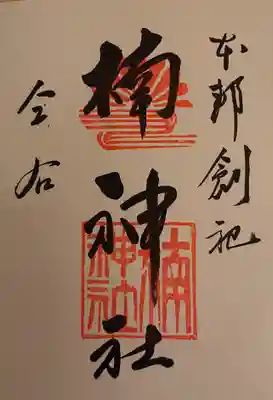 本邦創祀
楠神社
仝右
楠神社